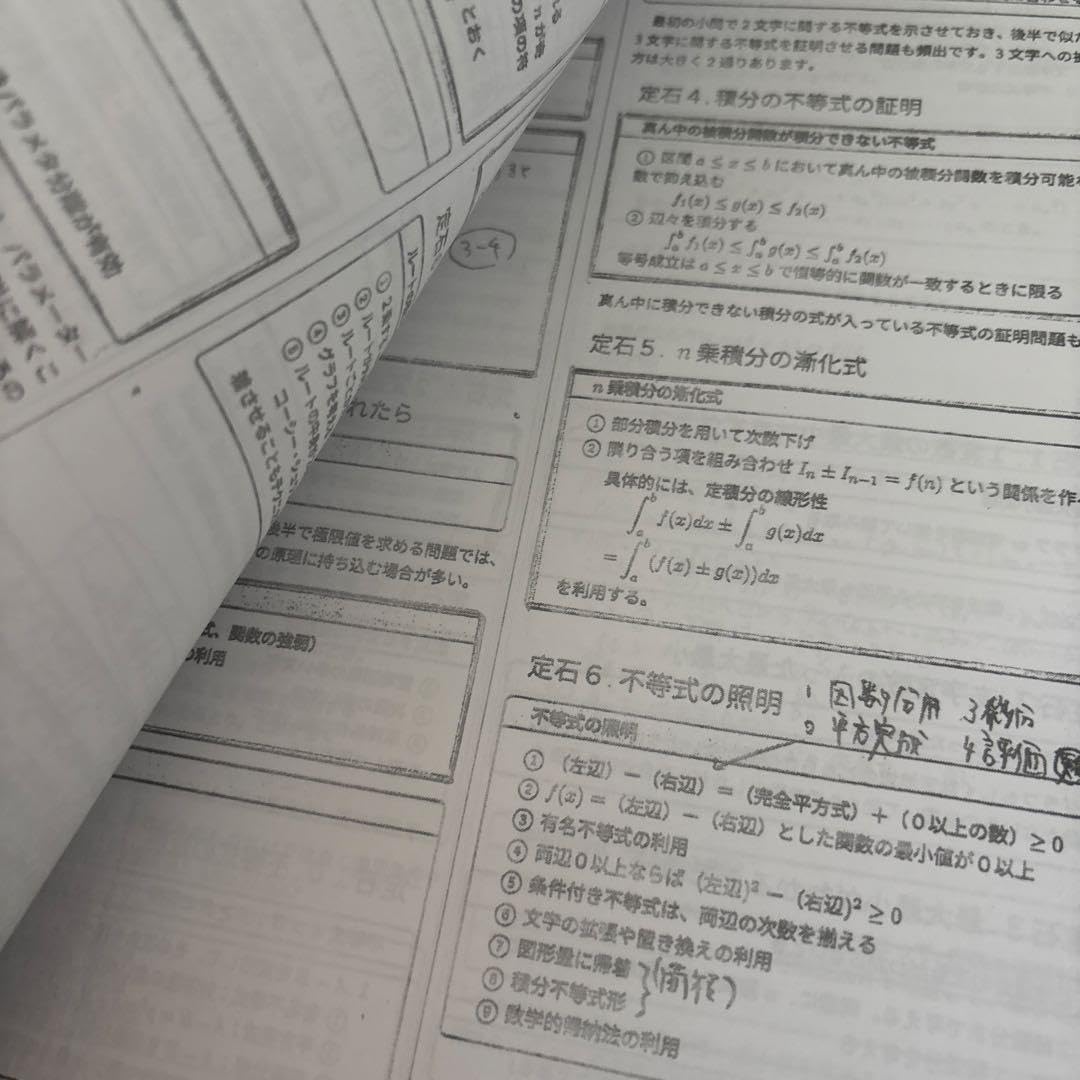 最初の小問で2文字に関する不等式を示させておき、後半で似
3文字に関する不等式を証明させる問題も頻出です。3文字への
方は大きく2通りあります。
定石4.積分の不等式の証明
真ん中の被積分関数が積分できない不等式
① 区間 a ≤ x ≤ b において真ん中の被積分関数を積分可能
数で抑え込む
f₁(x) ≤ g(x) ≤ f₂(x)
② 辺々を積分する
∫ₐᵇ f₁(x) ≤ ∫ₐᵇ g(x) ≤ ∫ₐᵇ f₂(x)
等号成立は a ≤ x ≤ b で恒等的に関数が一致するときに限る
真ん中に積分できない積分の式が入っている不等式の証明問題も
定石5.n乗積分の漸化式
n乗積分の漸化式
① 部分積分を用いて次数下げ
② 隣り合う項を組み合わせ Iₙ ± Iₙ₋₁ = f(n) という関係を作
具体的には、定積分の線形性
∫ₐᵇ f(x)dx ± ∫ₐᵇ g(x)dx
= ∫ₐᵇ (f(x) ± g(x))dx
を利用する。
定石6.不等式の照明
1 因数分解 3 微分
2 平方完成 4
不等式の照明
① (左辺) − (右辺) = (完全平方式) + (0以上の数) ≥ 0
② f(x) = (左辺) − (右辺) とした関数の最小値が0以上
③ 有名不等式の利用
④ 両辺0以上ならば (左辺)² − (右辺)² ≥ 0
⑤ 条件付き不等式は、両辺の次数を揃える
⑥ 文字の拡張や置き換えの利用
⑦ 図形量に帰着
⑧ 積分不等式形
⑨ 数学的帰納法の利用
3-4
れたら
後半で極限値を求める問題では、
の原理に持ち込む場合が多い。
式、関数の強弱)
の利用
パラメタ分離が有効
パラメーター
に解くに
とおく
定石
① 2乗
② ルート
③ ルート
④ グラフを
⑤ ルートの
コーシー・シ